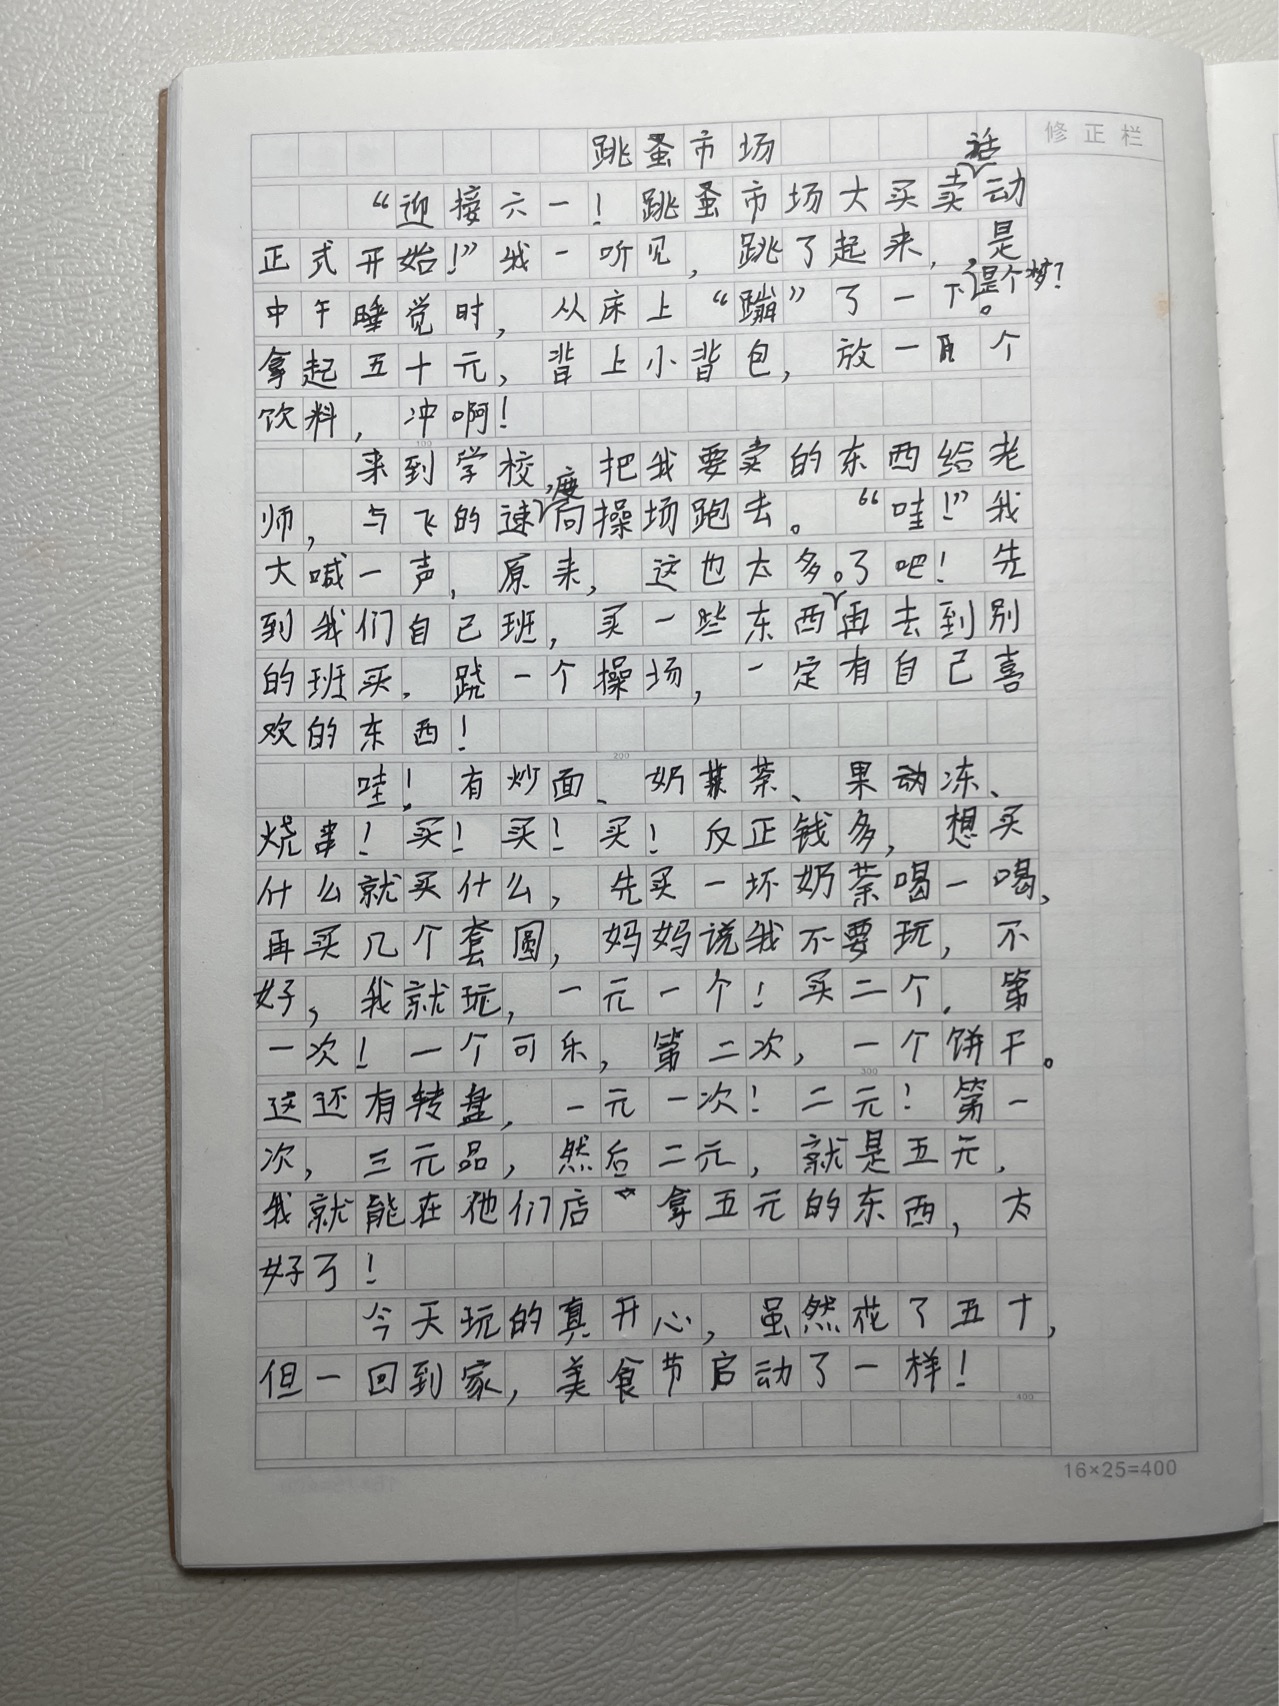 跳蚤市场
修正栏
“迎接六一！跳蚤市场大买卖活动
正式开始！”我一听见，跳了起来，是
中午睡觉时，从床上“蹦”了一下，是个梦？。
拿起五十元，背上小背包，放一个
饮料，冲啊！
100
来到学校，把我要卖的东西给老
师，与飞的速度向操场跑去。“哇！”我
大喊一声，原来，这也太多了吧！先
到我们自己班，买一些东西再去到别
的班买，跷一个操场，一定有自己喜
欢的东西！
200
哇！有炒面、奶茶、果动冻、
烧串！买！买！买！反正钱多，想买
什么就买什么，先买一坏奶茶喝一喝，
再买几个套圈，妈妈说我不要玩，不
好，我就玩，一元一个！买二个，第
一次！一个可乐，第二次，一个饼干。
300
这还有转盘，一元一次！二元！第一
次，三元品，然后二元，就是五元，
我就能在他们店拿五元的东西，太
好了！
今天玩的真开心，虽然花了五十，
但一回到家，美食节启动了一样！
400
16×25=400